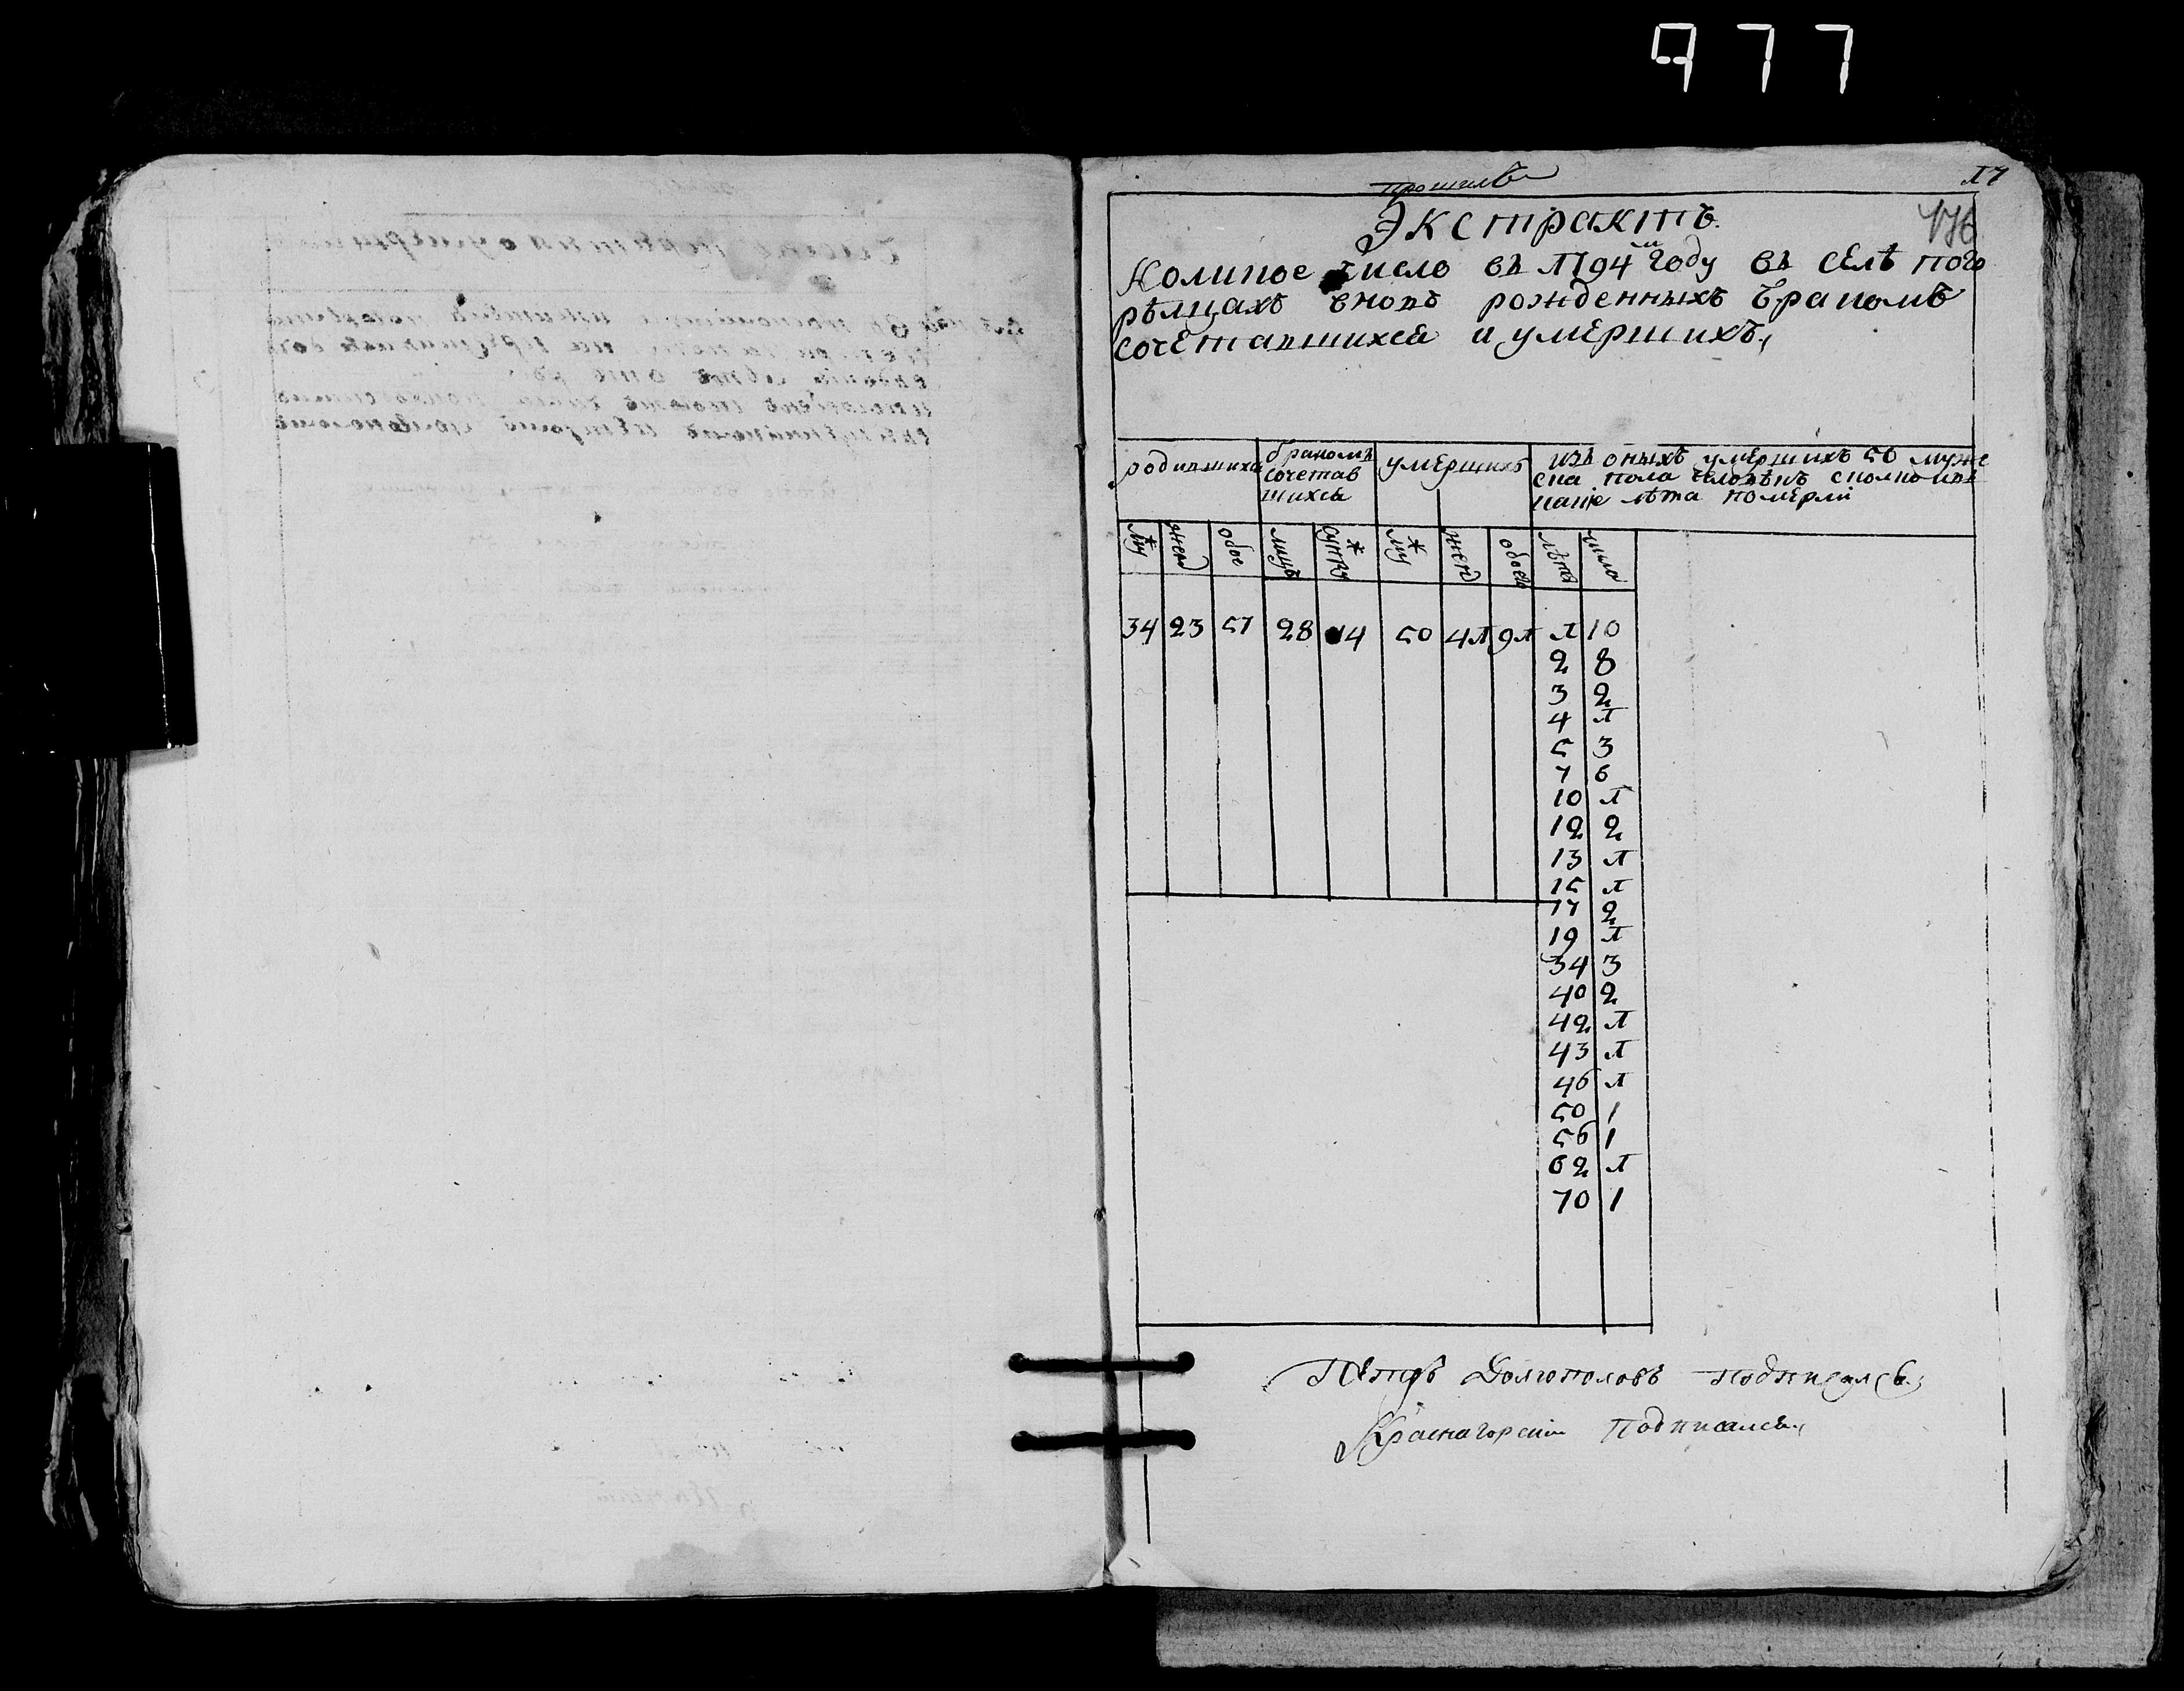 977
17
176
Экстрактъ
Коликое число въ 1794м году въ селѣ пого
рѣлцахъ вновь рожденныхъ бракомъ
сочетавшихся и умершихъ,
родившихся бракомъ сочетав шихся умершихъ изъ оныхъ умершихъ 50 муже
ска пола человѣкъ сколко кое
лѣта померли
му жен обое лицъ супру му жен обоего лѣтъ число
34 23 57 28 14 50 41 91 1 10
2 8
3 2
4 1
5 3
7 6
10 1
12 2
13 1
15 1
17 2
19 1
34 3
40 2
42 1
43 1
46 1
50 1
56 1
62 1
70 1
Петръ Долгополовъ подписался
Краснагорскiи подписался,